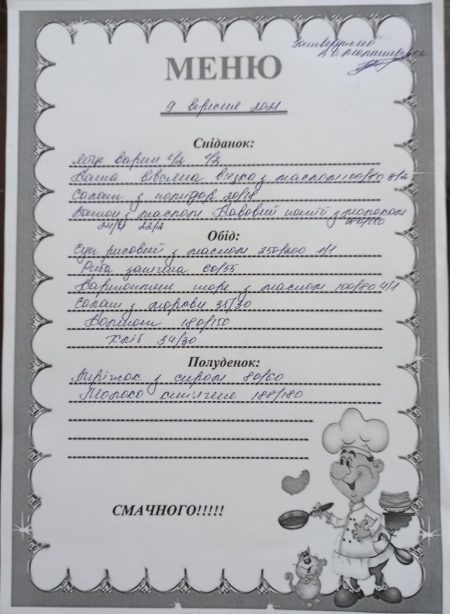 Затверджено
МЕНЮ
9 вересня 2021
Сніданок:
Яйце варен 1/2 1/2
Каша вівсяна в'язка з маслом 100/80
Салат з помідор 20/
з маслом Кавовий напій з молоком
Обід:
Суп рисовий з маслом 250/200
Риба запечена 60/55
Картопляне пюре з маслом 100/80
Салат з моркви 35/30
Компот 180/150
Хліб 34/30
Полуденок:
Пиріжок з сиром 80/60
Молоко кипячене 188/180
СМАЧНОГО!!!!!